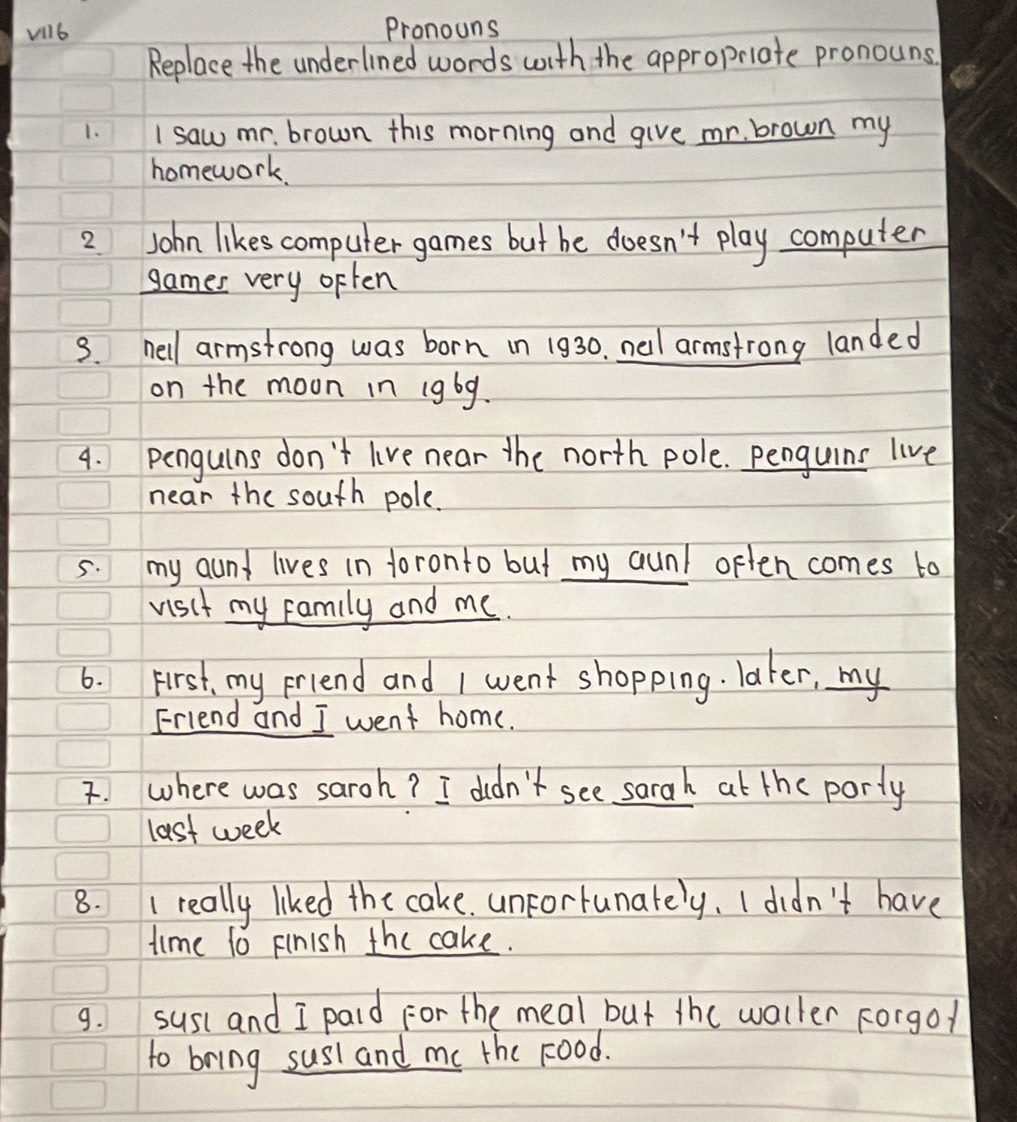 VII6
Pronouns
Replace the underlined words with the appropriate pronouns.
1. I saw mr. brown this morning and give mr. brown my
homework.
2. John likes computer games but he doesn't play computer
games very often
3. neil armstrong was born in 1930. neil armstrong landed
on the moon in 1969.
4. penguins don't live near the north pole. penguins live
near the south pole.
5. my aunt lives in toronto but my aunt often comes to
visit my family and me.
6. First, my friend and I went shopping. later, my
Friend and I went home.
7. where was sarah? I didn't see sarah at the party
last week
8. I really liked the cake. unfortunately, I didn't have
time to finish the cake.
9. susi and I paid for the meal but the waiter forgot
to bring susi and me the food.